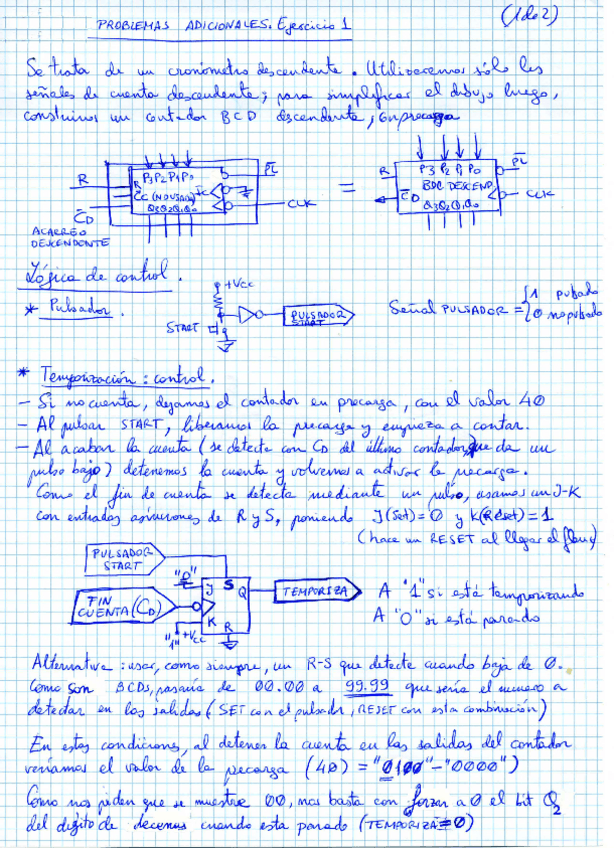 (1 de 2)
PROBLEMAS ADICIONALES. Ejercicio 1
Se trata de un cronómetro descendente. Utilizaremos sólo las
señales de cuenta descendente; para simplificar el dibujo luego,
construimos un contador BCD descendente, con precarga
R
P3 P2 P1 P0
PL
CC (NO USADA)
Q3 Q2 Q1 Q0
CLK
CD
ACARREO
DESCENDENTE
=
R
P3 P2 P1 P0
PL
BDC DESCEND.
CD
Q3 Q2 Q1 Q0
CLK
Lógica de control.
* Pulsador.
+Vcc
START
PULSADOR
START
Señal PULSADOR = { 1 pulsado
0 no pulsado
* Temporización: control.
- Si no cuenta, dejamos el contador en precarga, con el valor 40
- Al pulsar START, liberamos la precarga y empieza a contar.
- Al acabar la cuenta (se detecta con CD del último contador, que da un
pulso bajo) detenemos la cuenta y volvemos a activar la precarga.
Como el fin de cuenta se detecta mediante un pulso, usamos un J-K
con entradas asíncronas de R y S, poniendo J(Set)=0 y K(Reset)=1
(hace un RESET al llegar el flanco)
PULSADOR
START
"0"
J S Q
FIN
CUENTA (CD)
K R
"1" +Vcc
TEMPORIZA
A "1" si está temporizando
A "0" si está parado
Alternativa: usar, como siempre, un R-S que detecte cuando baja de 0.
Como son BCDs, pasaría de 00.00 a 99.99 que sería el numero a
detectar en las salidas (SET con el pulsador, RESET con esta combinación)
En estas condiciones, al detener la cuenta en las salidas del contador
veríamos el valor de la precarga (40) = "0100"-"0000")
Como nos piden que se muestre 00, nos basta con forzar a 0 el bit Q2
del dígito de decenas cuando esta parado (TEMPORIZA=0)